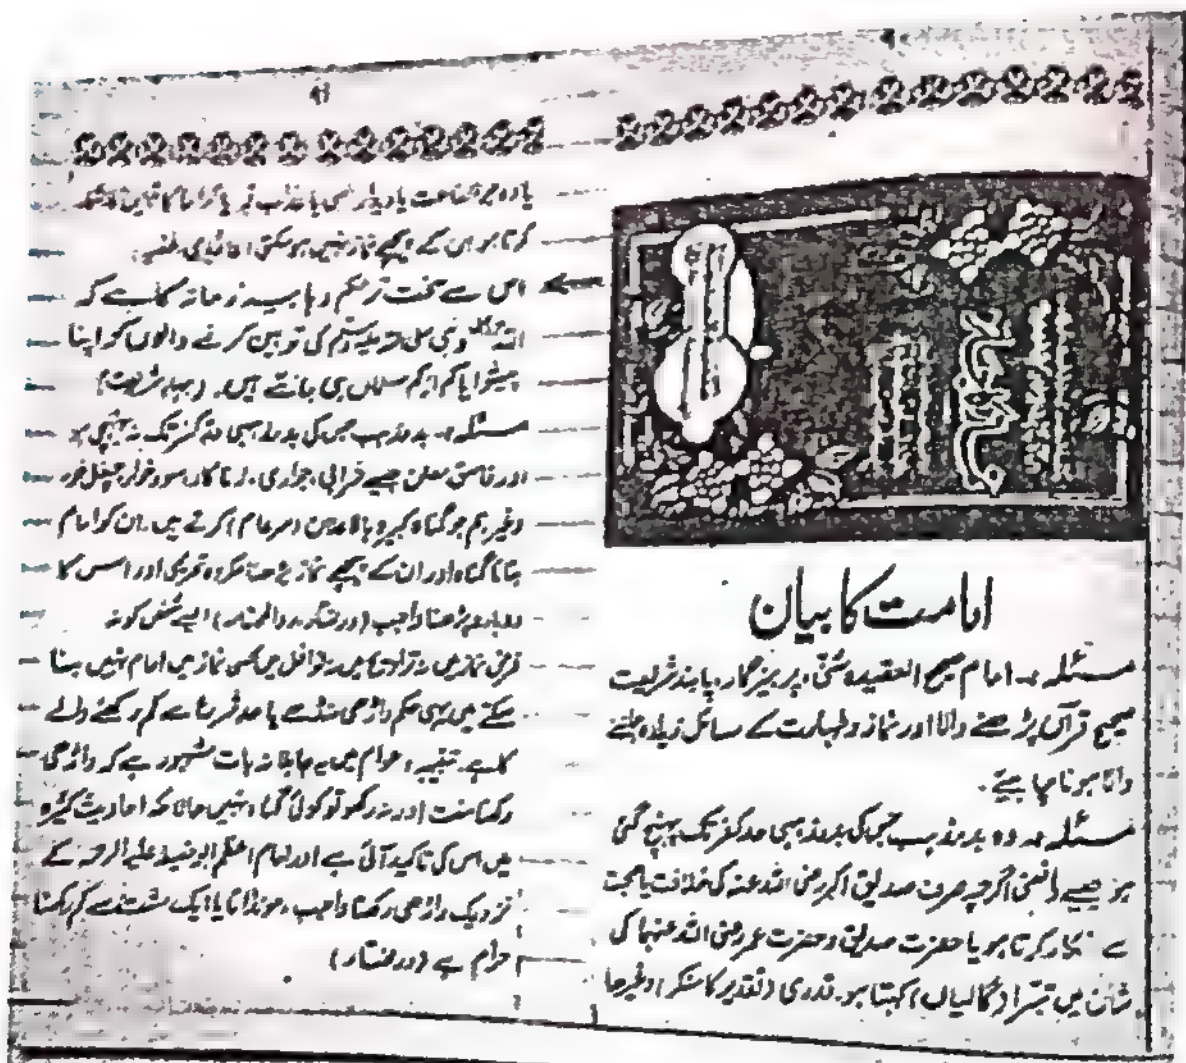 امامت کا بیان
مسئلہ :۔ امام صحیح العقیدہ سنی، پرہیزگار، پابند شریعت
صحیح قرآن پڑھنے والا اور نماز و طہارت کے مسائل زیادہ جاننے
والا ہونا چاہیے۔
مسئلہ :۔ وہ بدمذہب جس کی بدمذہبی حد کفر تک پہنچ گئی
ہو جیسے رافضی اگرچہ صرف صدیق اکبر رضی اللہ عنہ کی خلافت یا صحبت
سے انکار کرتا ہو یا حضرت صدیق و حضرت عمر رضی اللہ عنہما کی
شان میں تبرا (گالیاں) کہتا ہو۔ قدری (تقدیر کا منکر) وغیرہا
۹۱
یا وہ جو شفاعت یا دیدار الٰہی یا عذاب قبر یا کراماً کاتبین کا انکار
کرتا ہو اس کے پیچھے نماز نہیں ہو سکتی
اس سے سخت تر حکم وہابیہ زمانہ کا ہے کہ
اللہ و نبی صلی اللہ علیہ وسلم کی توہین کرنے والوں کو اپنا
پیشوا یا کم از کم مسلمان ہی جانتے ہیں۔ (بہار شریعت)
مسئلہ :۔ بدمذہب جس کی بدمذہبی حد کفر تک نہ پہنچی ہو
اور فاسق معلن جیسے شرابی، جواری، زناکار، سود خوار، چغل خور
وغیرہم جو گناہ کبیرہ بالاعلان (سرعام) کرتے ہیں۔ ان کو امام
بنانا گناہ اور ان کے پیچھے نماز پڑھنا مکروہ تحریمی اور اس کا
دوبارہ پڑھنا واجب (در مختار، رد المحتار) ایسے شخص کو نہ
فرض نماز میں نہ تراویح میں نہ نوافل میں کسی نماز میں امام نہیں بنا
سکتے ہیں یہی حکم داڑھی منڈے یا حد شرع سے کم رکھنے والے
کا ہے۔ تنبیہ : عوام میں یہ جاہلانہ بات مشہور ہے کہ داڑھی
رکھنا سنت اور نہ رکھو تو کوئی گناہ نہیں حالانکہ احادیث کثیرہ
میں اس کی تاکید آئی ہے اور امام اعظم ابو حنیفہ علیہ الرحمہ کے
نزدیک داڑھی رکھنا واجب، مونڈانا یا ایک مشت سے کم رکھنا
حرام ہے (در مختار)